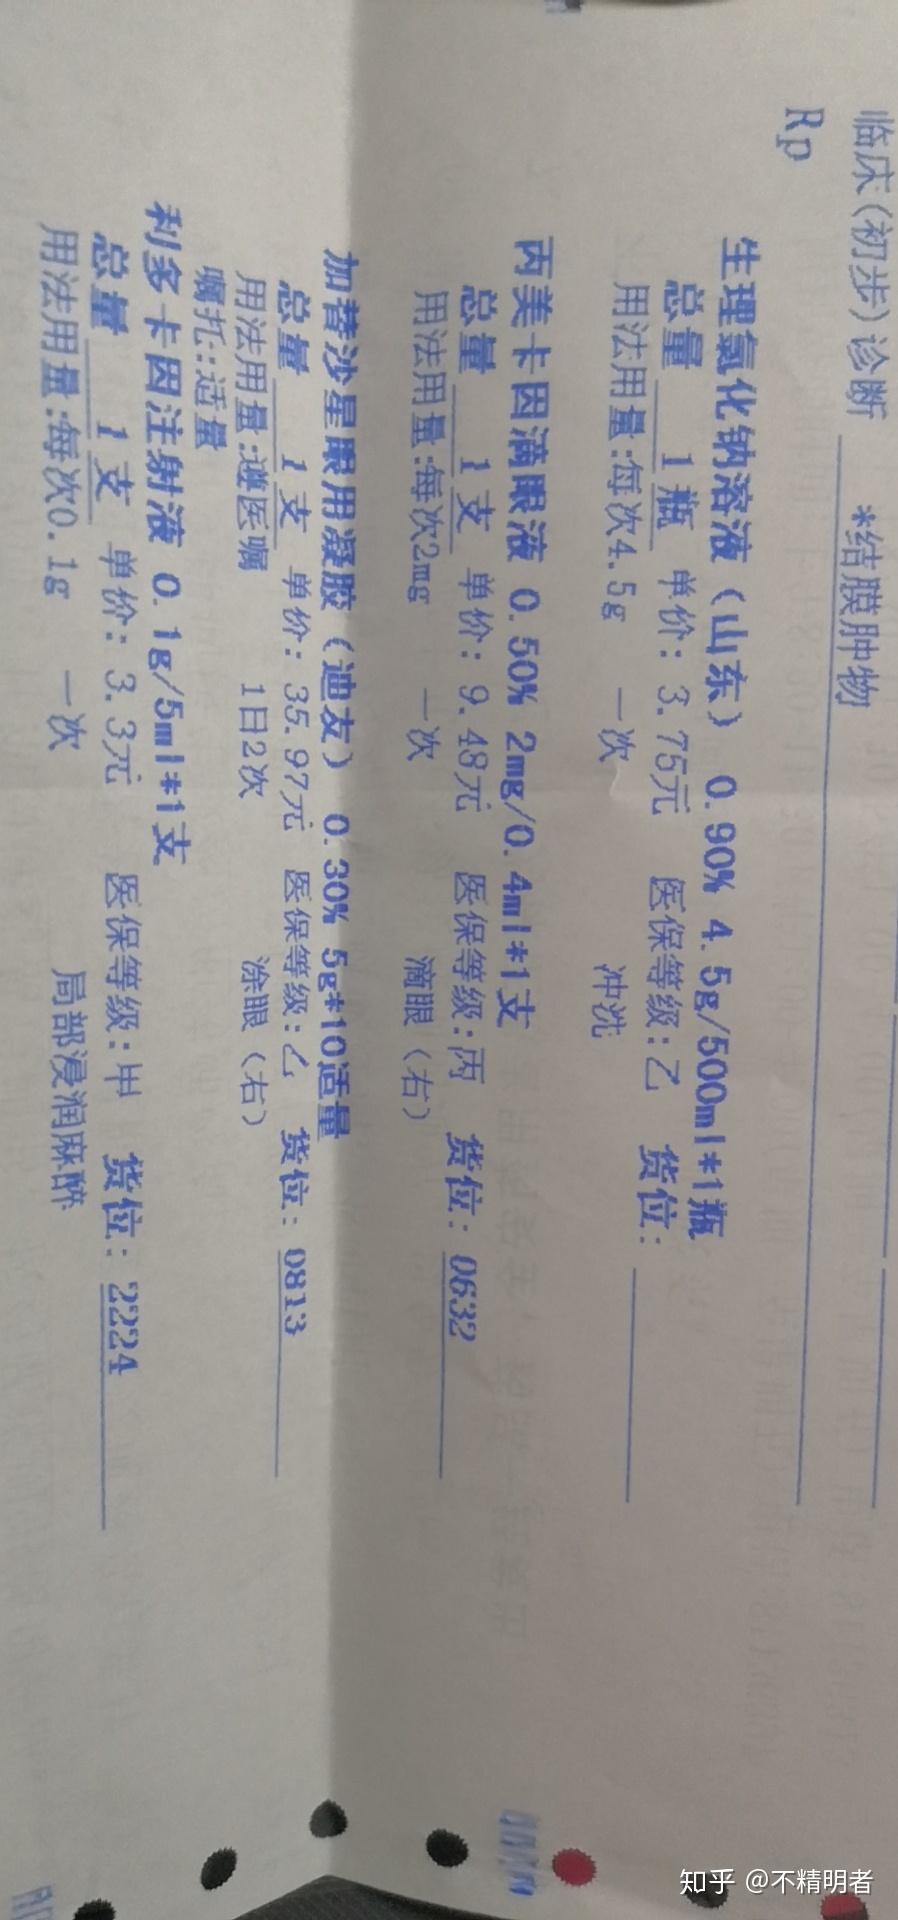 临床(初步)诊断 *结膜肿物
Rp
生理氯化钠溶液(山东) 0.90% 4.5g/500ml*1瓶
总量 1瓶 单价: 3.75元 医保等级:乙 货位:
用法用量:每次4.5g 一次 冲洗
丙美卡因滴眼液 0.50% 2mg/0.4ml*1支
总量 1支 单价: 9.48元 医保等级:丙 货位: 0632
用法用量:每次2mg 一次 滴眼(右)
加替沙星眼用凝胶(迪友) 0.30% 5g*10适量
总量 1支 单价: 35.97元 医保等级:乙 货位: 0813
用法用量:遵医嘱 1日2次 涂眼(右)
嘱托:适量
利多卡因注射液 0.1g/5ml*1支
总量 1支 单价: 3.3元 医保等级:甲 货位: 2224
用法用量:每次0.1g 一次 局部浸润麻醉
知乎 @不精明者